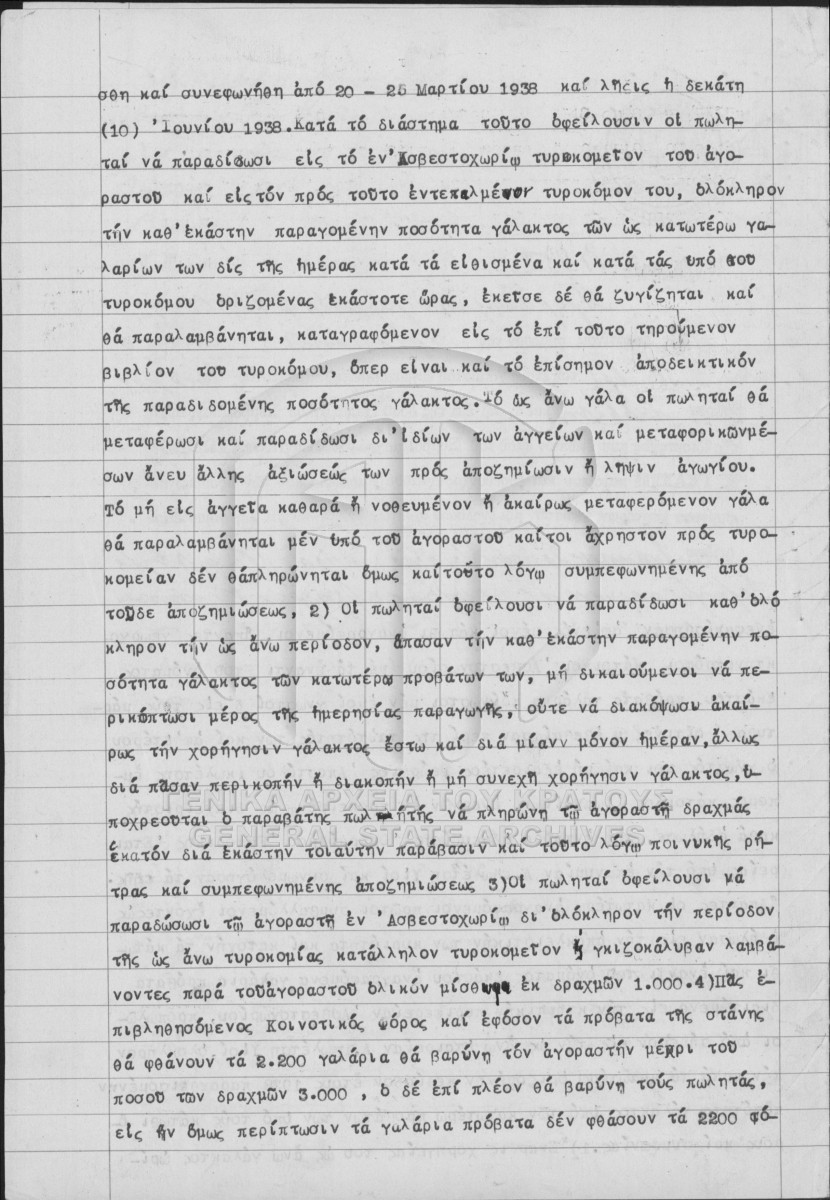 σθη καί συνεφωνήθη ἀπό 20 - 25 Μαρτίου 1938 καί λῆξις ἡ δεκάτη
(10) Ἰουνίου 1938. Κατά τό διάστημα τοῦτο ὀφείλουσιν οἱ πωλη-
ταί νά παραδίδωσι εἰς τό ἐν Ἀσβεστοχωρίῳ τυροκομεῖον τοῦ ἀγο-
ραστοῦ καί εἰς τόν πρός τοῦτο ἐντεταλμένον τυροκόμον του, ὁλόκληρον
τήν καθ' ἑκάστην παραγομένην ποσότητα γάλακτος τῶν ὡς κατωτέρω γα-
λαρίων των δίς τῆς ἡμέρας κατά τά εἰθισμένα καί κατά τάς ὑπό του
τυροκόμου ὁριζομένας ἑκάστοτε ὥρας, ἐκεῖσε δέ θά ζυγίζηται καί
θά παραλαμβάνηται, καταγραφόμενον εἰς τό ἐπί τοῦτο τηρούμενον
βιβλίον τοῦ τυροκόμου, ὅπερ εἶναι καί τό ἐπίσημον ἀποδεικτικόν
τῆς παραδιδομένης ποσότητος γάλακτος. Τό ὡς ἄνω γάλα οἱ πωληταί θά
μεταφέρωσι καί παραδίδωσι δι' ἰδίων των ἀγγείων καί μεταφορικῶνμέ-
σων ἄνευ ἄλλης ἀξιώσεώς των πρός ἀποζημίωσιν ἤ λῆψιν ἀγωγίου.
Τό μή εἰς ἀγγεῖα καθαρά ἤ νοθευμένον ἤ ἀκαίρως μεταφερόμενον γάλα
θά παραλαμβάνηται μέν ὑπό τοῦ ἀγοραστοῦ καίτοι ἄχρηστον πρός τυρο-
κομείαν δέν θάπληρώνηται ὅμως καίτοῦτο λόγῳ συμπεφωνημένης ἀπό
τοῦδε ἀποζημιώσεως, 2) Οἱ πωληταί ὀφείλουσι νά παραδίδωσι καθ' ὁλό
κληρον τήν ὡς ἄνω περίοδον, ἅπασαν τήν καθ' ἑκάστην παραγομένην πο-
σότητα γάλακτος τῶν κατωτέρω προβάτων των, μή δικαιούμενοι νά πε-
ρικόπτωσι μέρος τῆς ἡμερησίας παραγωγῆς, οὔτε νά διακόψωσι ἀκαί-
ρως τήν χορήγησιν γάλακτος ἔστω καί διά μίανν μόνον ἡμέραν, ἄλλως
διά πᾶσαν περικοπήν ἤ διακοπήν ἤ μή συνεχῆ χορήγησιν γάλακτος, ὑ-
ποχρεοῦται ὁ παραβάτης πωλητής νά πληρώνη τῷ ἀγοραστῇ δραχμάς
ἑκατόν διά ἑκάστην τοιαύτην παράβασιν καί τοῦτο λόγῳ ποινικῆς ρή-
τρας καί συμπεφωνημένης ἀποζημιώσεως 3) Οἱ πωληταί ὀφείλουσι νά
παραδώσωσι τῷ ἀγοραστῇ ἐν Ἀσβεστοχωρίῳ δι' ὁλόκληρον τήν περίοδον
τῆς ὡς ἄνω τυροκομίας κατάλληλον τυροκομεῖον ἤ γκιζοκάλυβαν λαμβά-
νοντες παρά τοῦἀγοραστοῦ ὁλικόν μίσθωμα ἐκ δραχμῶν 1.000. 4) Πᾶς ἐ-
πιβληθησόμενος Κοινοτικός φόρος καί ἐφόσον τά πρόβατα τῆς στάνης
θά φθάνουν τά 2.200 γαλάρια θά βαρύνη τόν ἀγοραστήν μέχρι τοῦ
ποσοῦ τῶν δραχμῶν 3.000 , ὁ δέ ἐπί πλέον θά βαρύνη τούς πωλητάς,
εἰς ἥν ὅμως περίπτωσιν τά γαλάρια πρόβατα δέν φθάσουν τά 2200 φό-
ΓΕΝΙΚΑ ΑΡΧΕΙΑ ΤΟΥ ΚΡΑΤΟΥΣ
GENERAL STATE ARCHIVES